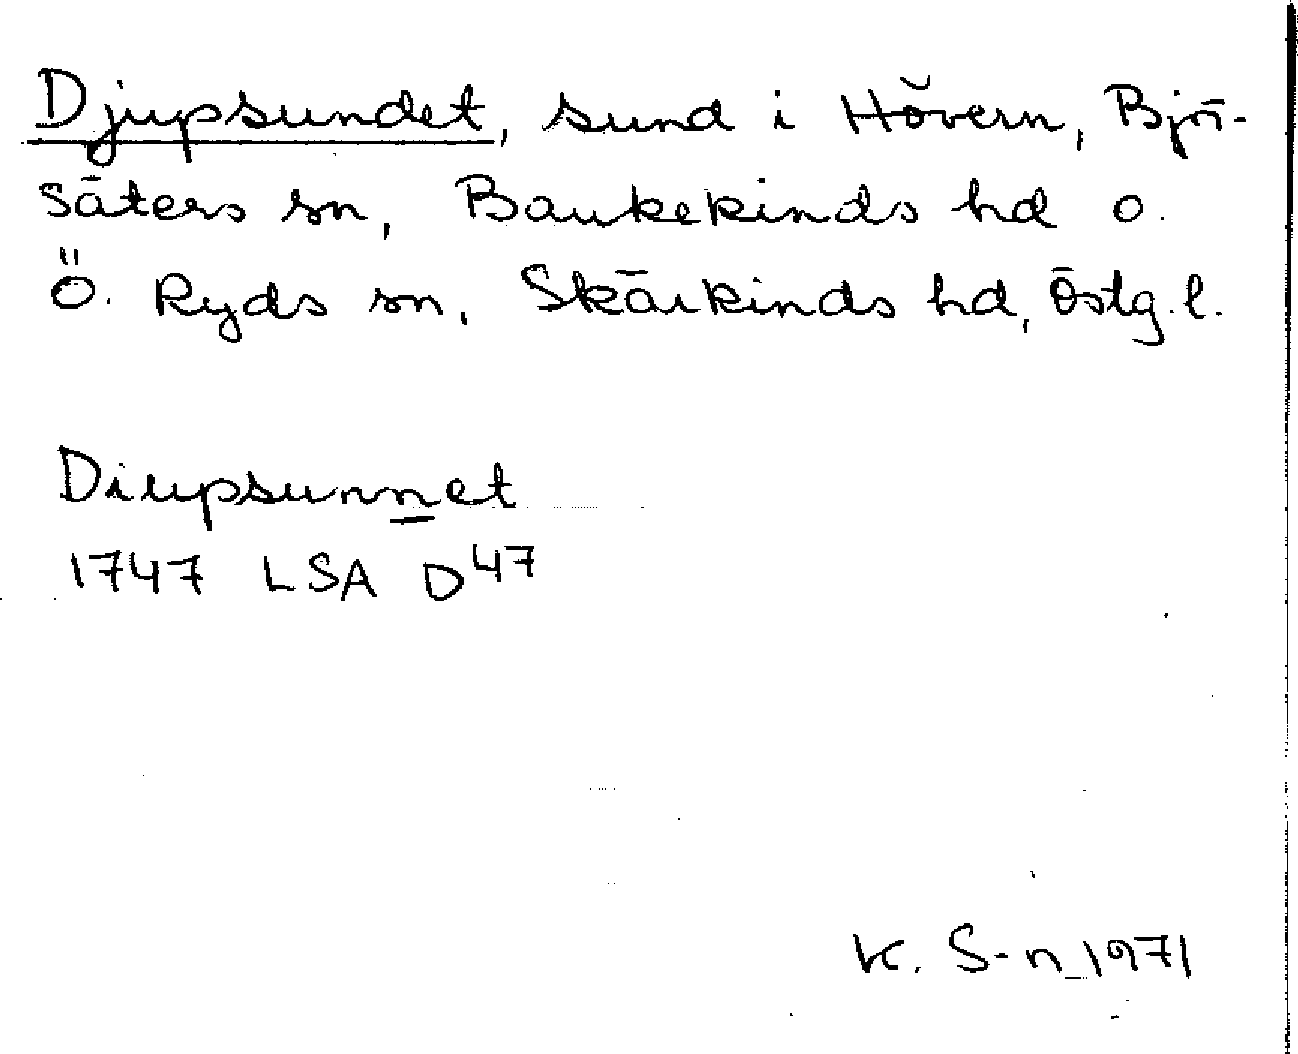 Djupsundet, sund i Hövern, Björ-
säters sn, Bankekinds hd o.
Ö. Ryds sn, Skärkinds hd, Östg.l.
Diupsunnet
1747 LSA D47
K. S-n 1971